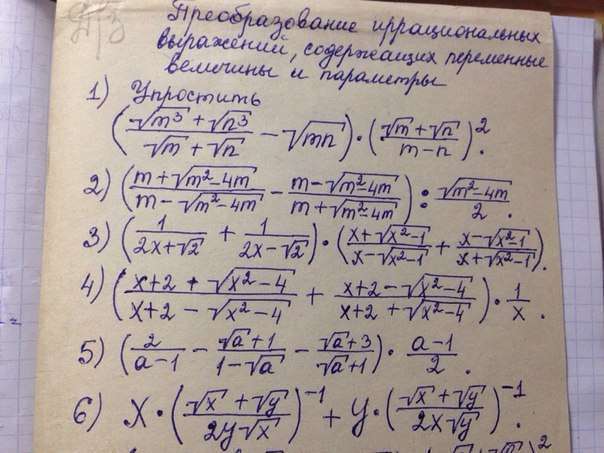 Д/з
Преобразование иррациональных
выражений, содержащих переменные
величины и параметры
1) Упростить
((√m³ + √n³)/(√m + √n) − √mn) · ((√m + √n)/(m − n))².
2) ((m + √(m² − 4m))/(m − √(m² − 4m)) − (m − √(m² − 4m))/(m + √(m² − 4m))) : √(m² − 4m)/2.
3) (1/(2x + √2) + 1/(2x − √2)) · ((x + √(x² − 1))/(x − √(x² − 1)) + (x − √(x² − 1))/(x + √(x² − 1))).
4) ((x + 2 + √(x² − 4))/(x + 2 − √(x² − 4)) + (x + 2 − √(x² − 4))/(x + 2 + √(x² − 4))) · 1/x.
5) (2/(a − 1) − (√a + 1)/(1 − √a) − (√a + 3)/(√a + 1)) · (a − 1)/2.
6) x · ((√x + √y)/(2y√x))⁻¹ + y · ((√x + √y)/(2x√y))⁻¹.